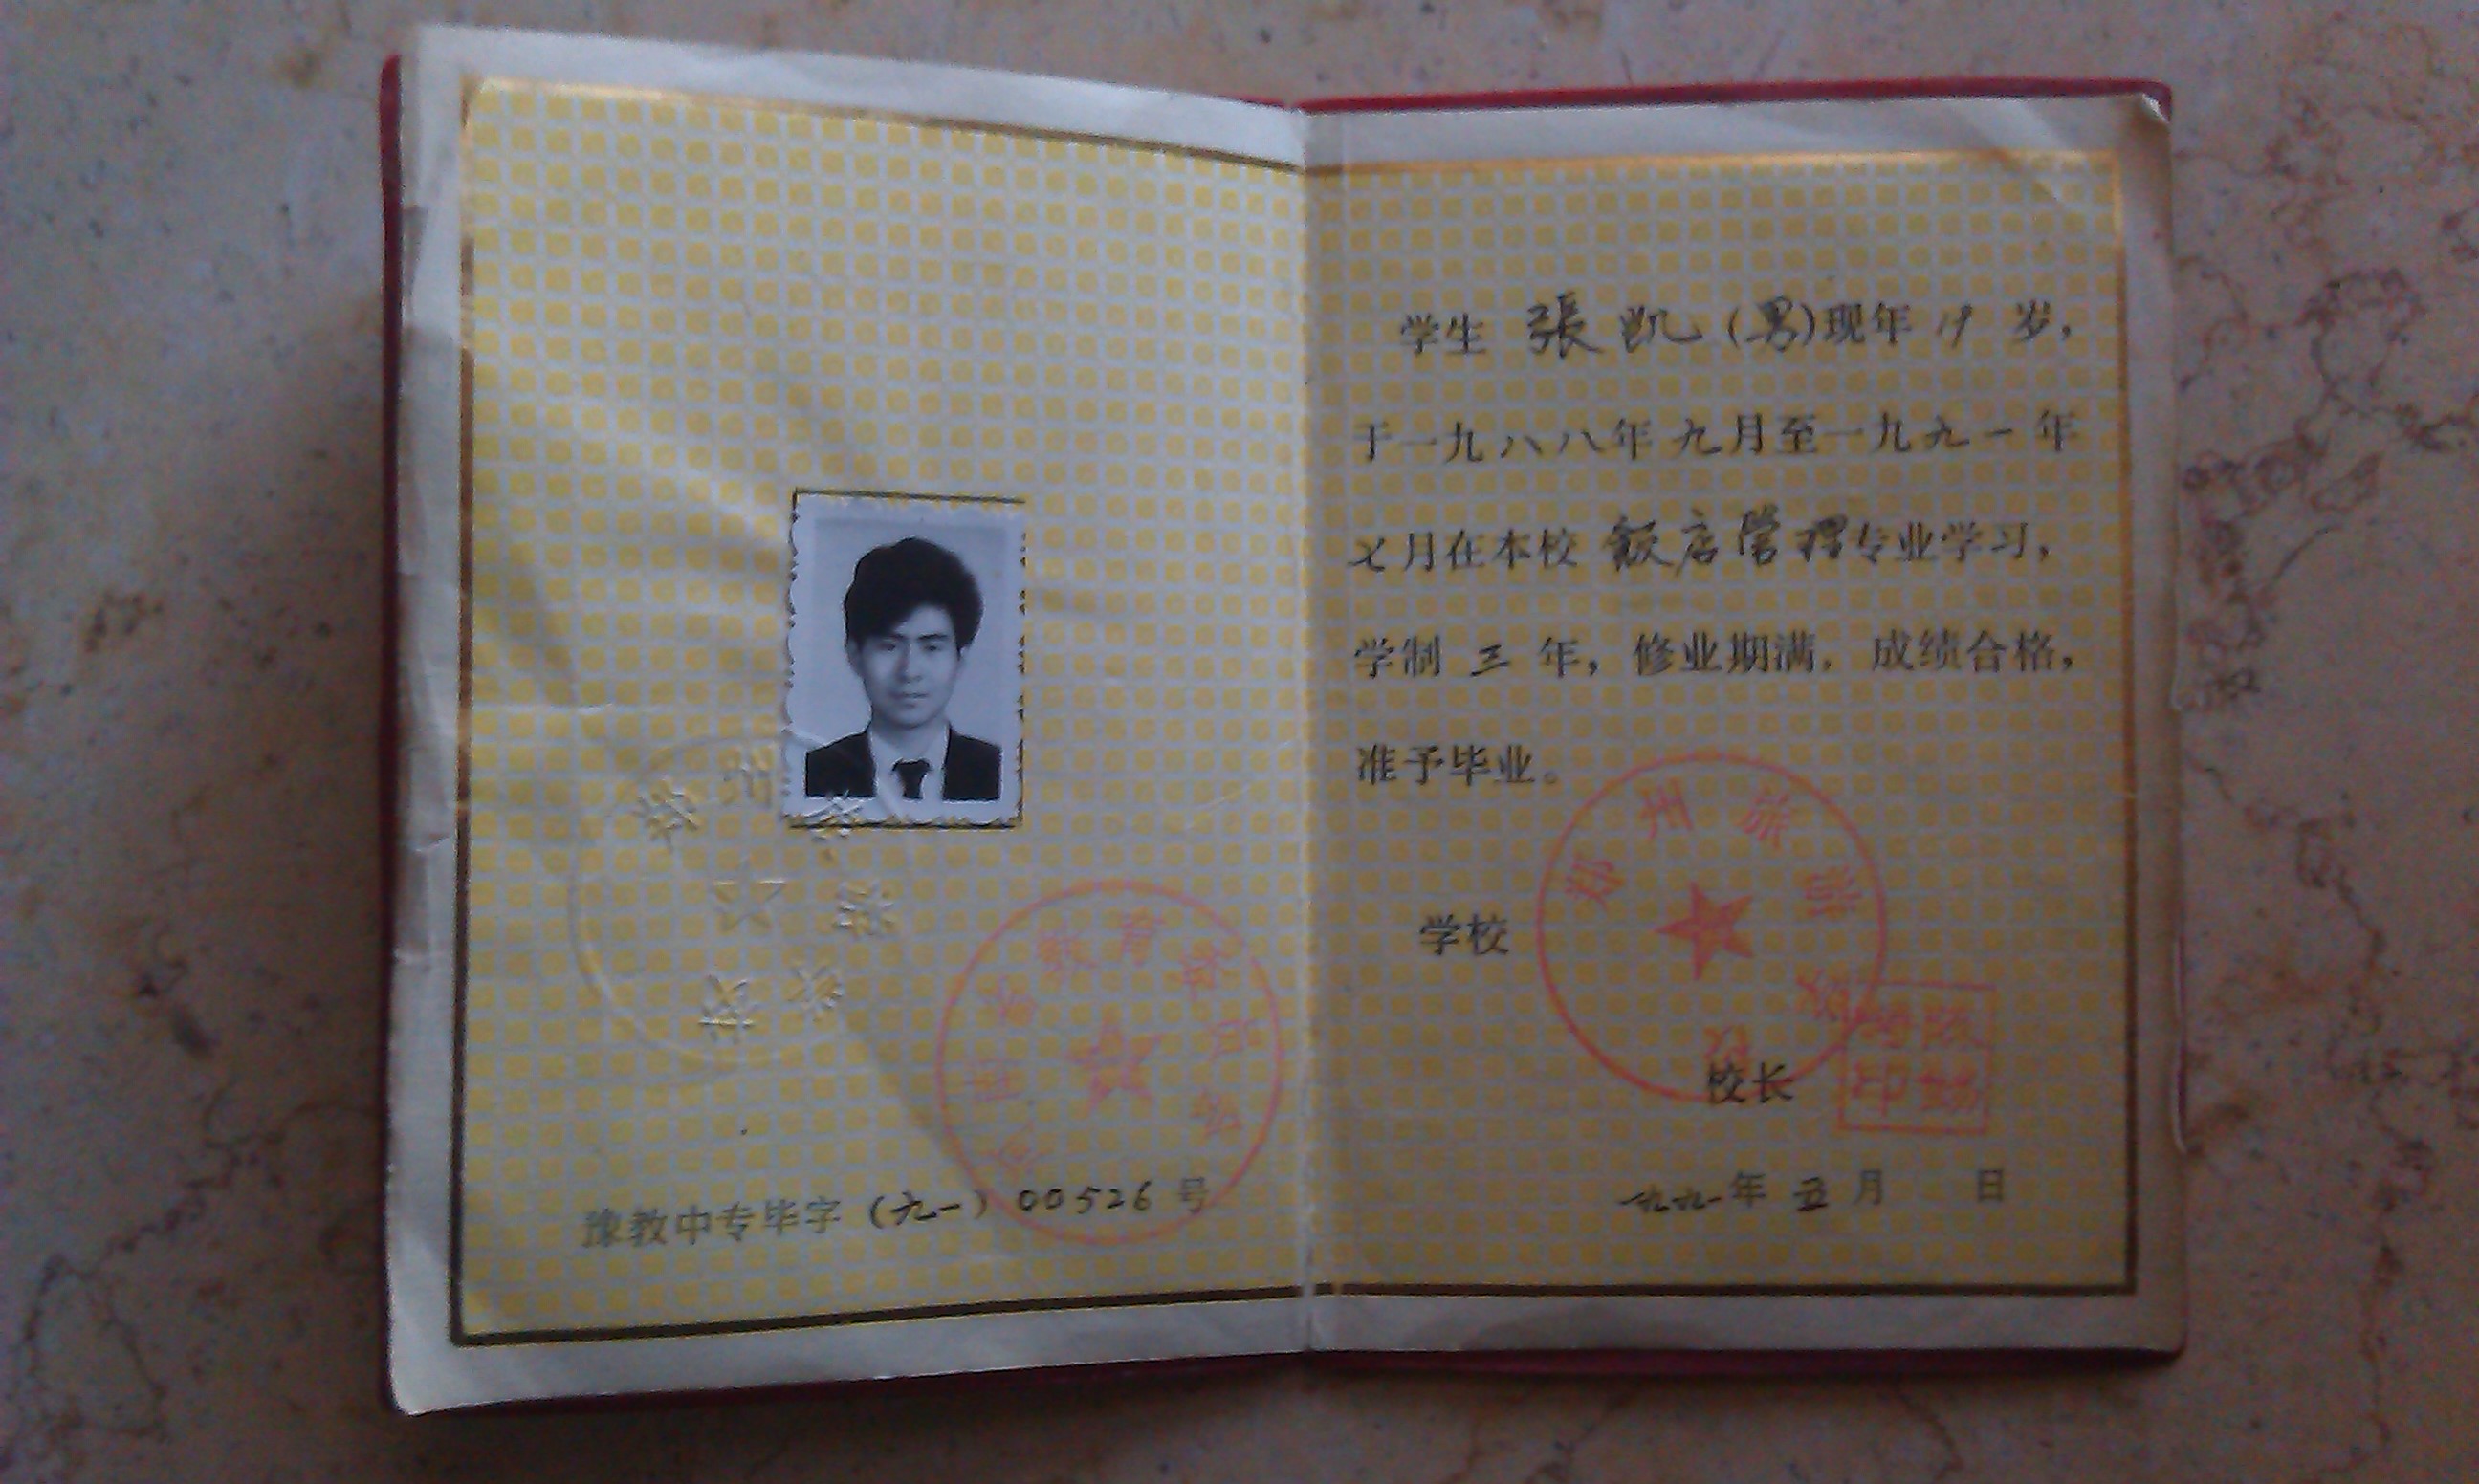 豫教中专毕字(九一)00526 号
学生 張凯(男)现年 19 岁,
于一九八八年九月至一九九一年
七月在本校飯店管理专业学习,
学制 三 年,修业期满,成绩合格,
准予毕业。
郑州旅游
学校
校长
一九九一年 五 月 日